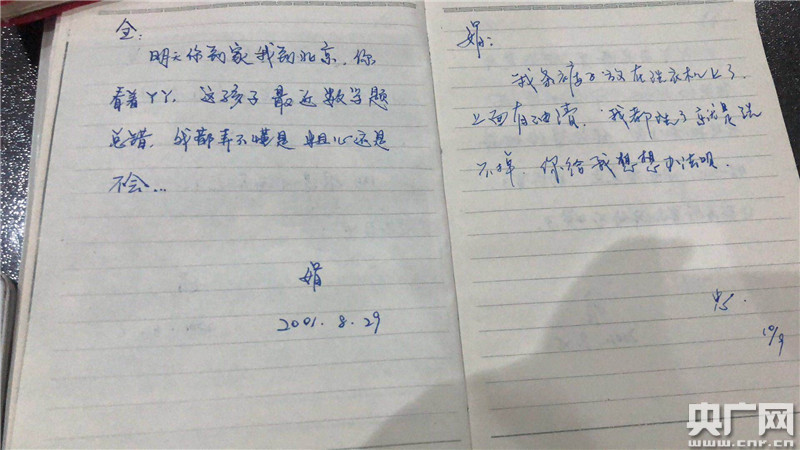 全：
明天你到家我到北京，你
看着丫丫，这孩子最近数学题
总错，我都弄不懂是粗心还是
不会…
娟
2001.8.29
娟：
我条裤子放在洗衣机上了，
上面有油渍，我都洗了就是洗
不掉，你给我想想办法呗。
10/9
央广网
www.cnr.cn